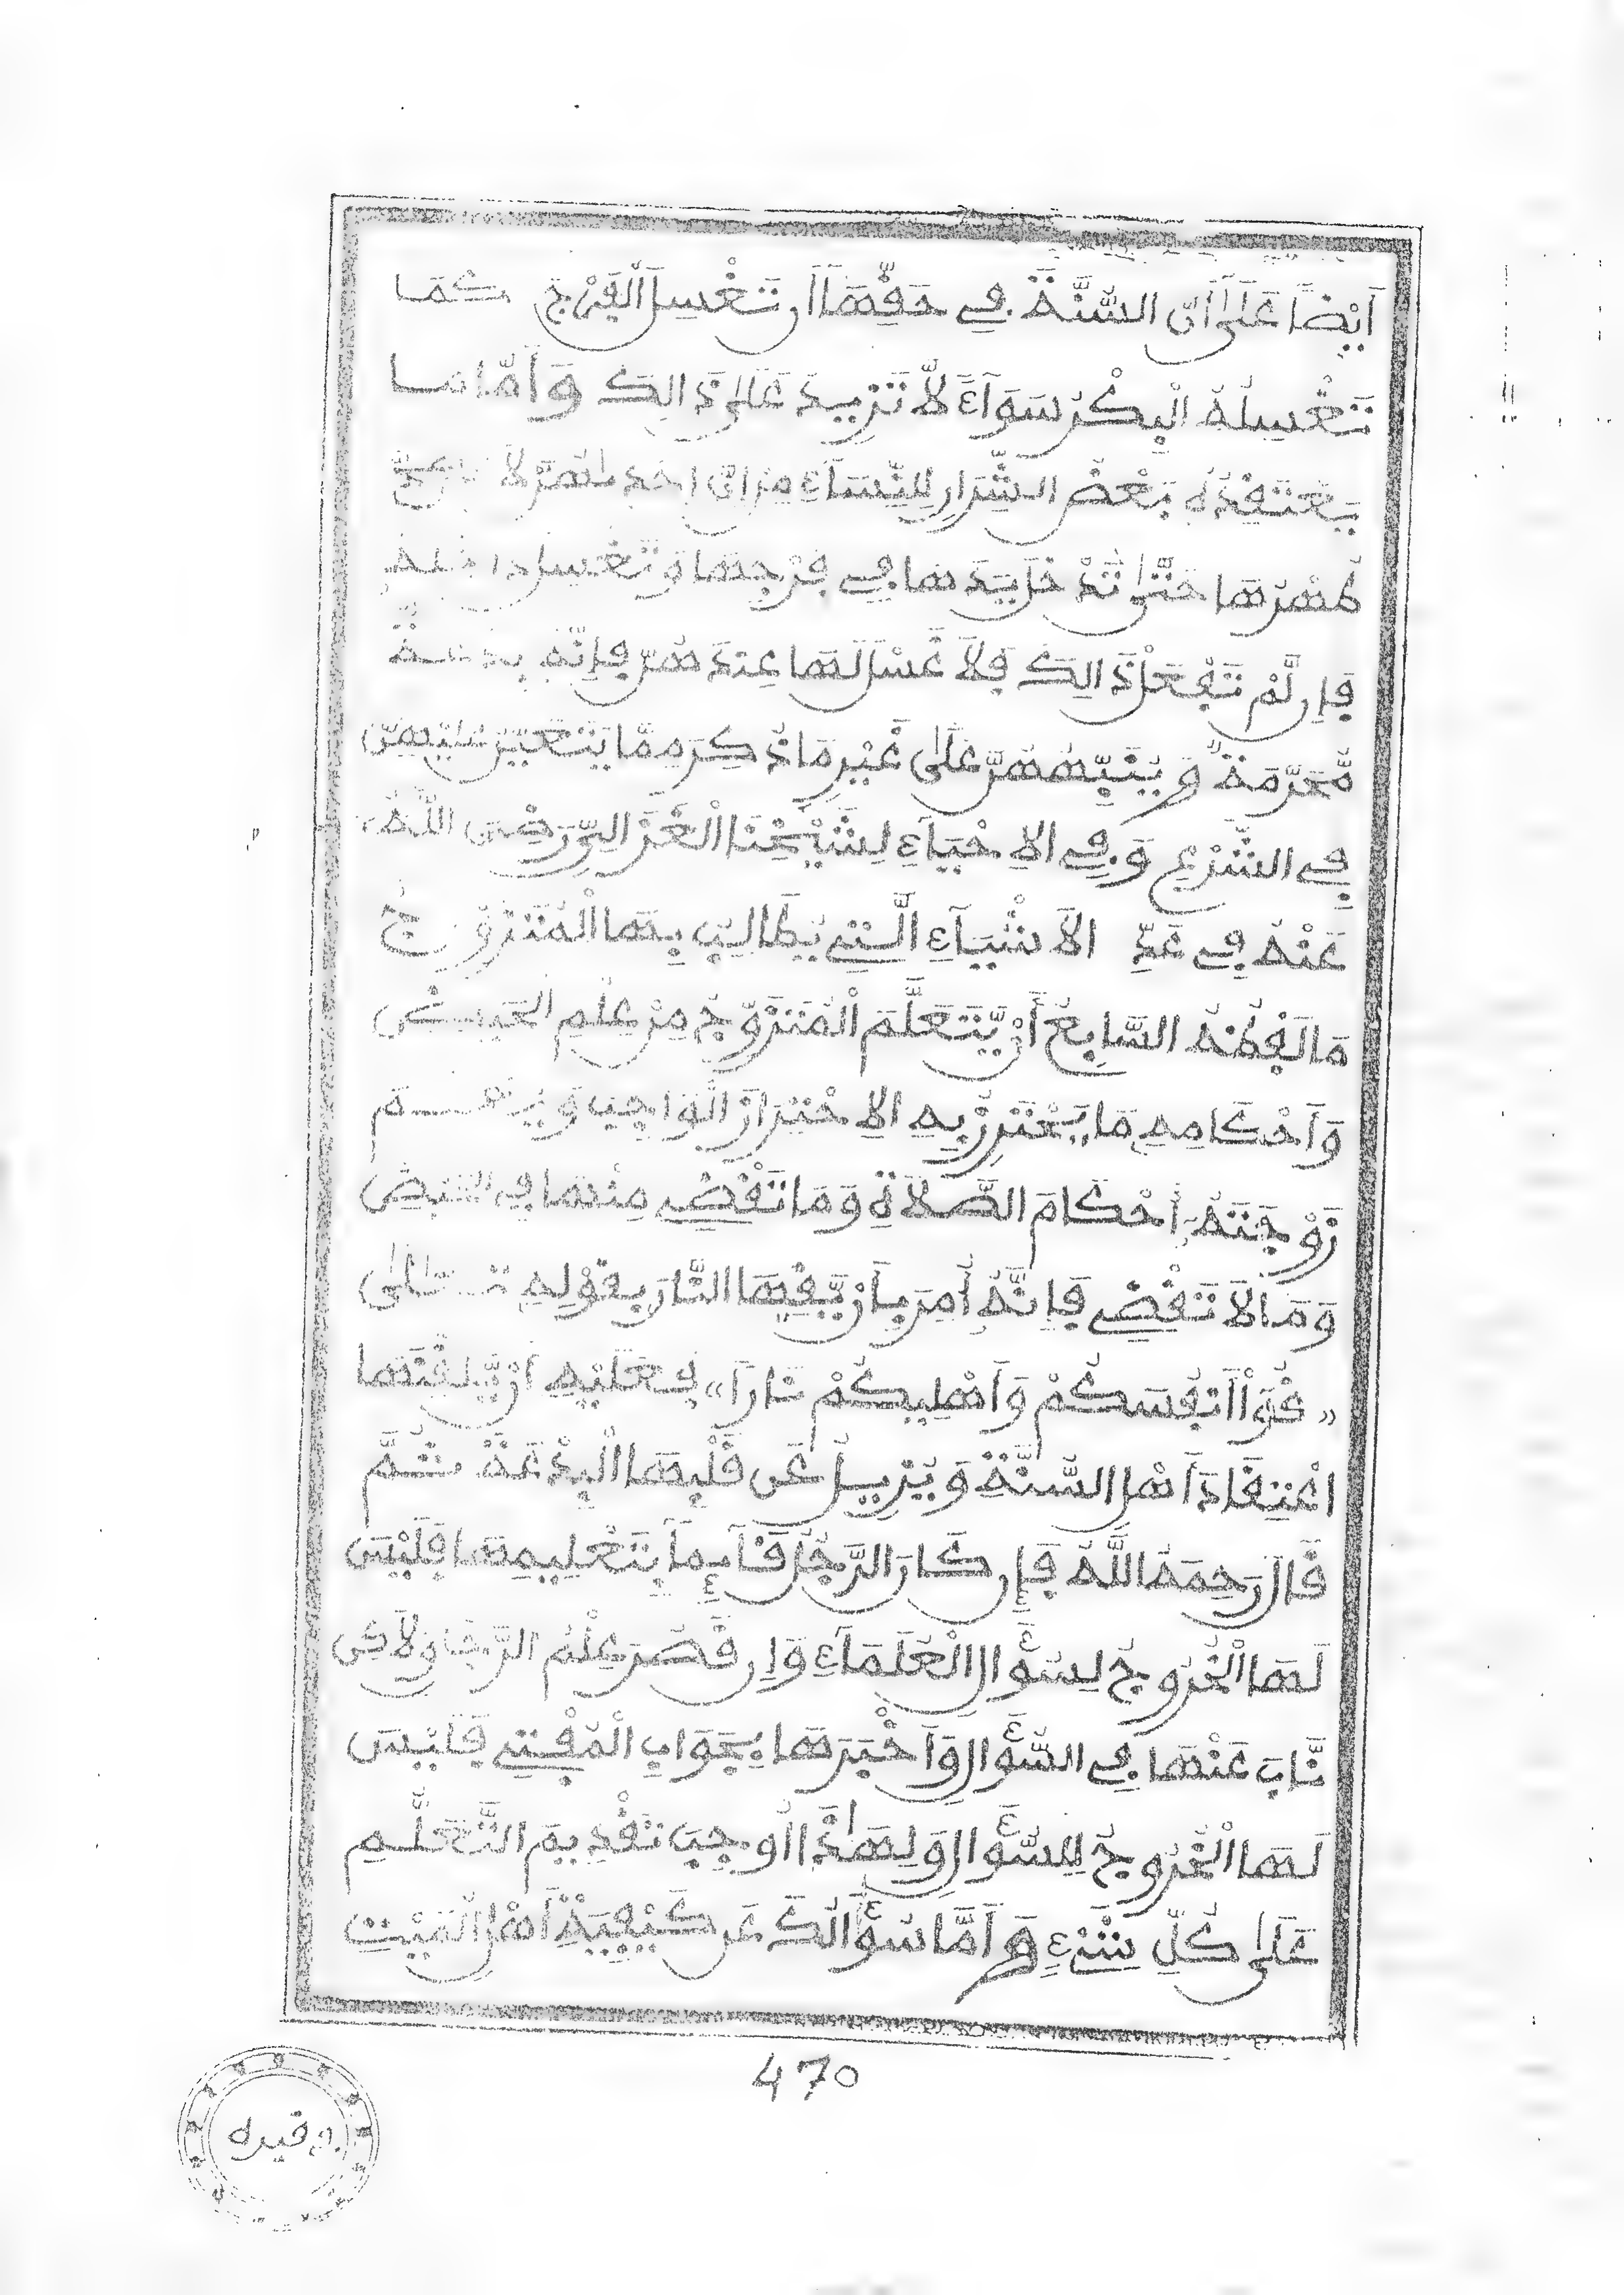 أَيْضًا عَلَىٰ أَنَّ السُّنَّةَ فِي حَقِّهَا أَن تَغْسِلَ الْفَرْجَ كَمَا
تَغْسِلُهُ الْبِكْرُ سَوَآءً لَّا تَزِيدُ عَلَىٰ ذَالِكَ وَأَمَّا مَا
يَعْتَقِدُهُ بَعْضُ الشِّرَارِ لِلنِّسَآءِ مِنْ أَنَّ إِحْدَاهُنَّ لَا
طُهْرَ لَهَا حَتَّىٰ تُدْخِلَ يَدَهَا فِي فَرْجِهَا وَتَغْسِلَ دَاخِلَهُ
فَإِن لَّمْ تَفْعَلْ ذَالِكَ فَلَا غُسْلَ لَهَا عِندَهُنَّ فَإِنَّهُ بِدْعَةٌ
مُّحَرَّمَةٌ وَيُنَبِّهُهُنَّ عَلَىٰ غَيْرِ مَا ذُكِرَ مِمَّا يَتَعَيَّنُ عَلَيْهِنَّ
فِي الشَّرْعِ وَفِي الإِحْيَآءِ لِشَيْخِنَا الْغَزَالِيِّ رَضِيَ اللَّهُ
عَنْهُ فِي عَدِّ الأَشْيَآءِ الَّتِي يُطَالَبُ بِهَا الْمُتَزَوِّجُ
مَا لَفْظُهُ السَّابِعُ أَنْ يَّتَعَلَّمَ الْمُتَزَوِّجُ مِنْ عِلْمِ الْحَيْضِ
وَأَحْكَامِهِ مَا يَحْتَرِزُ بِهِ الِاحْتِرَازَ الْوَاجِبَ وَيُعَلِّمَ
زَوْجَتَهُ أَحْكَامَ الصَّلَاةِ وَمَا تَقْضِي مِنْهَا فِي الْحَيْضِ
وَمَا لَا تَقْضِي فَإِنَّهُ أُمِرَ بِأَنْ يَّقِيَهَا النَّارَ بِقَوْلِهِ تَعَالَىٰ
«قُوٓاْ أَنفُسَكُمْ وَأَهْلِيكُمْ نَارًا» فَعَلَيْهِ أَنْ يُّلَقِّنَهَا
اعْتِقَادَ أَهْلِ السُّنَّةِ وَيُزِيلَ عَن قَلْبِهَا الْبِدْعَةَ ثُمَّ
قَالَ رَحِمَهُ اللَّهُ فَإِن كَانَ الرَّجُلُ قَآئِمًا بِتَعْلِيمِهَا فَلَيْسَ
لَهَا الْخُرُوجُ لِسُؤَالِ الْعُلَمَآءِ وَإِن قَصُرَ عِلْمُ الرَّجُلِ وَلَاكِن
نَّابَ عَنْهَا فِي السُّؤَالِ وَأَخْبَرَهَا بِجَوَابِ الْمُفْتِي فَلَيْسَ
لَهَا الْخُرُوجُ لِلسُّؤَالِ وَلِهَٰذَا أُوجِبَ تَقْدِيمُ التَّعَلُّمِ
عَلَىٰ كُلِّ شَيْءٍ وَأَمَّا سُؤَالُكَ عَن كَيْفِيَّةِ أَهْلِ الْمَيِّتِ
470